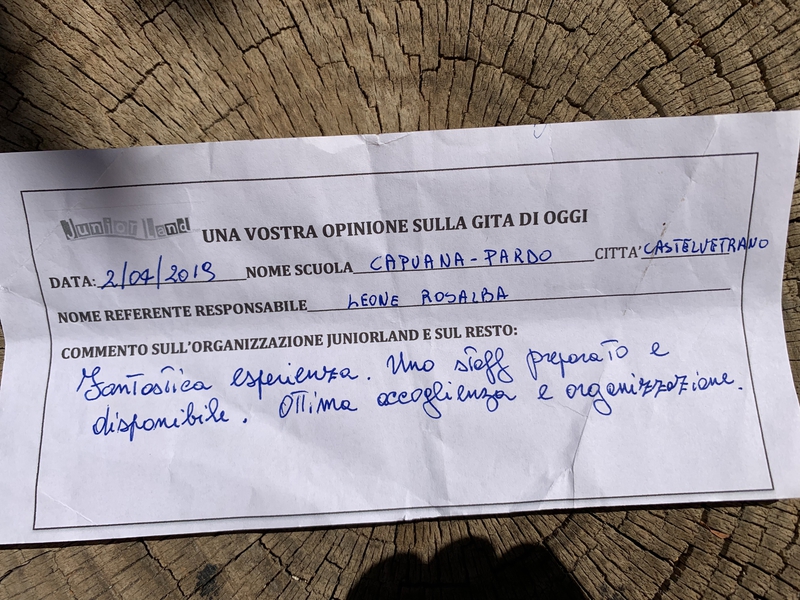 Junior Land UNA VOSTRA OPINIONE SULLA GITA DI OGGI
DATA: 2/04/2019 NOME SCUOLA CAPUANA-PARDO CITTA' CASTELVETRANO
NOME REFERENTE RESPONSABILE LEONE ROSALBA
COMMENTO SULL'ORGANIZZAZIONE JUNIORLAND E SUL RESTO:
Fantastica esperienza. Uno staff preparato e
disponibile. Ottima accoglienza e organizzazione.